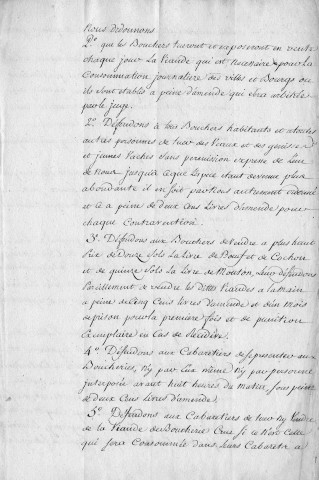 Nous ordonnons
2.º que les Bouchers tueront et exposeront en vente
chaque jour La Viande qui est necessaire pour La
Consommation journaliere des villes et Bourgs ou
ils sont etablis a peine d'amende qui sera arbitrée
par le juge.
2.º Deffendons a tous Bouchers habitants et a toutes
autres personnes de tuer des Veaux et des genisses
et jeunes Vaches sans permission expresse de
de Nous jusqu'a ce que l'espece etant devenue plus
abondante il en soit par Nous autrement ordonné
et a peine de deux Cens Livres d'amende pour
chaque Contravention.
3.º Deffendons aux Bouchers de vendre a plus haut
Prix de Douze Sols La Livre de Boeuf et de Cochon
et de quinze Sols La Livre de Mouton, Leur deffendons
Pareillement de vendre les dittes Viandes a la main
a peine de Cinq Cens Livres d'amende et d'un Mois
de prison pour la premiere fois et de punition
Exemplaire en Cas de Recidive.
4.º Deffendons aux Cabaretiers de se presenter aux
Boucheries, ny par Eux même ny par personne
interposée avant huit heures du matin, sous peine
de deux Cens Livres d'amende.
5.º Deffendons aux Cabaretiers de tuer ny Vendre
de la Viande de Boucherie Crue si ce n'est Celle
qui sera Consommée dans leurs Cabarets a